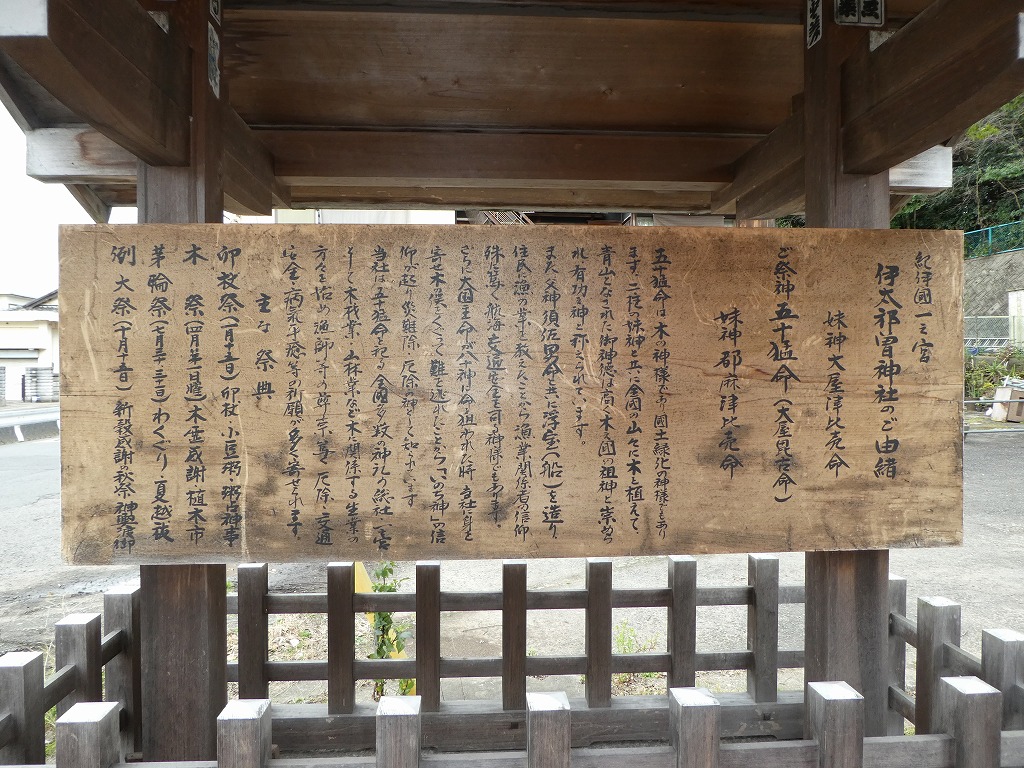 紀伊國一之宮
伊太祁曽神社のご由緒
妹神大屋津比売命
ご祭神 五十猛命(大屋毘古命)
妹神 都麻津比売命
五十猛命は、木の神様であり國土緑化の神様でもあり
ます。二柱の妹神と共に全國の山々に木を植えて、
青山となされた御神徳は高く木の國の祖神と崇められ
れ有功の神と称えられています。
また、父神須佐男命と共に浮宝(船)を造り、
住民に漁の業を教えたことから漁業関係者の信仰
殊に篤く航海安全、造船を司る神様でもあります。
さらに大国主命が八十神に命狙われた時、当社に身を
寄せ木の俣をくぐって難を逃れたことから「いのち神」の信
仰が起り災難除、厄除の神として知られています
当社は五十猛命を祀る全國多数の神社の総社、一宮
として木材業・山林業など木に関係する生業の
方々を始め漁師の等の尊崇篤く、厄除・交通
安全・病気平癒等の祈願が多く寄せられます。
主な祭典
卯杖祭(一月十五日)卯杖、小豆粥・粥占神事
木祭(四月第一日曜)木霊感謝植木市
茅輪祭(七月三十・三十一日)わくぐり、夏越祓
例大祭(十月十五日)新穀感謝の秋祭、神輿渡御